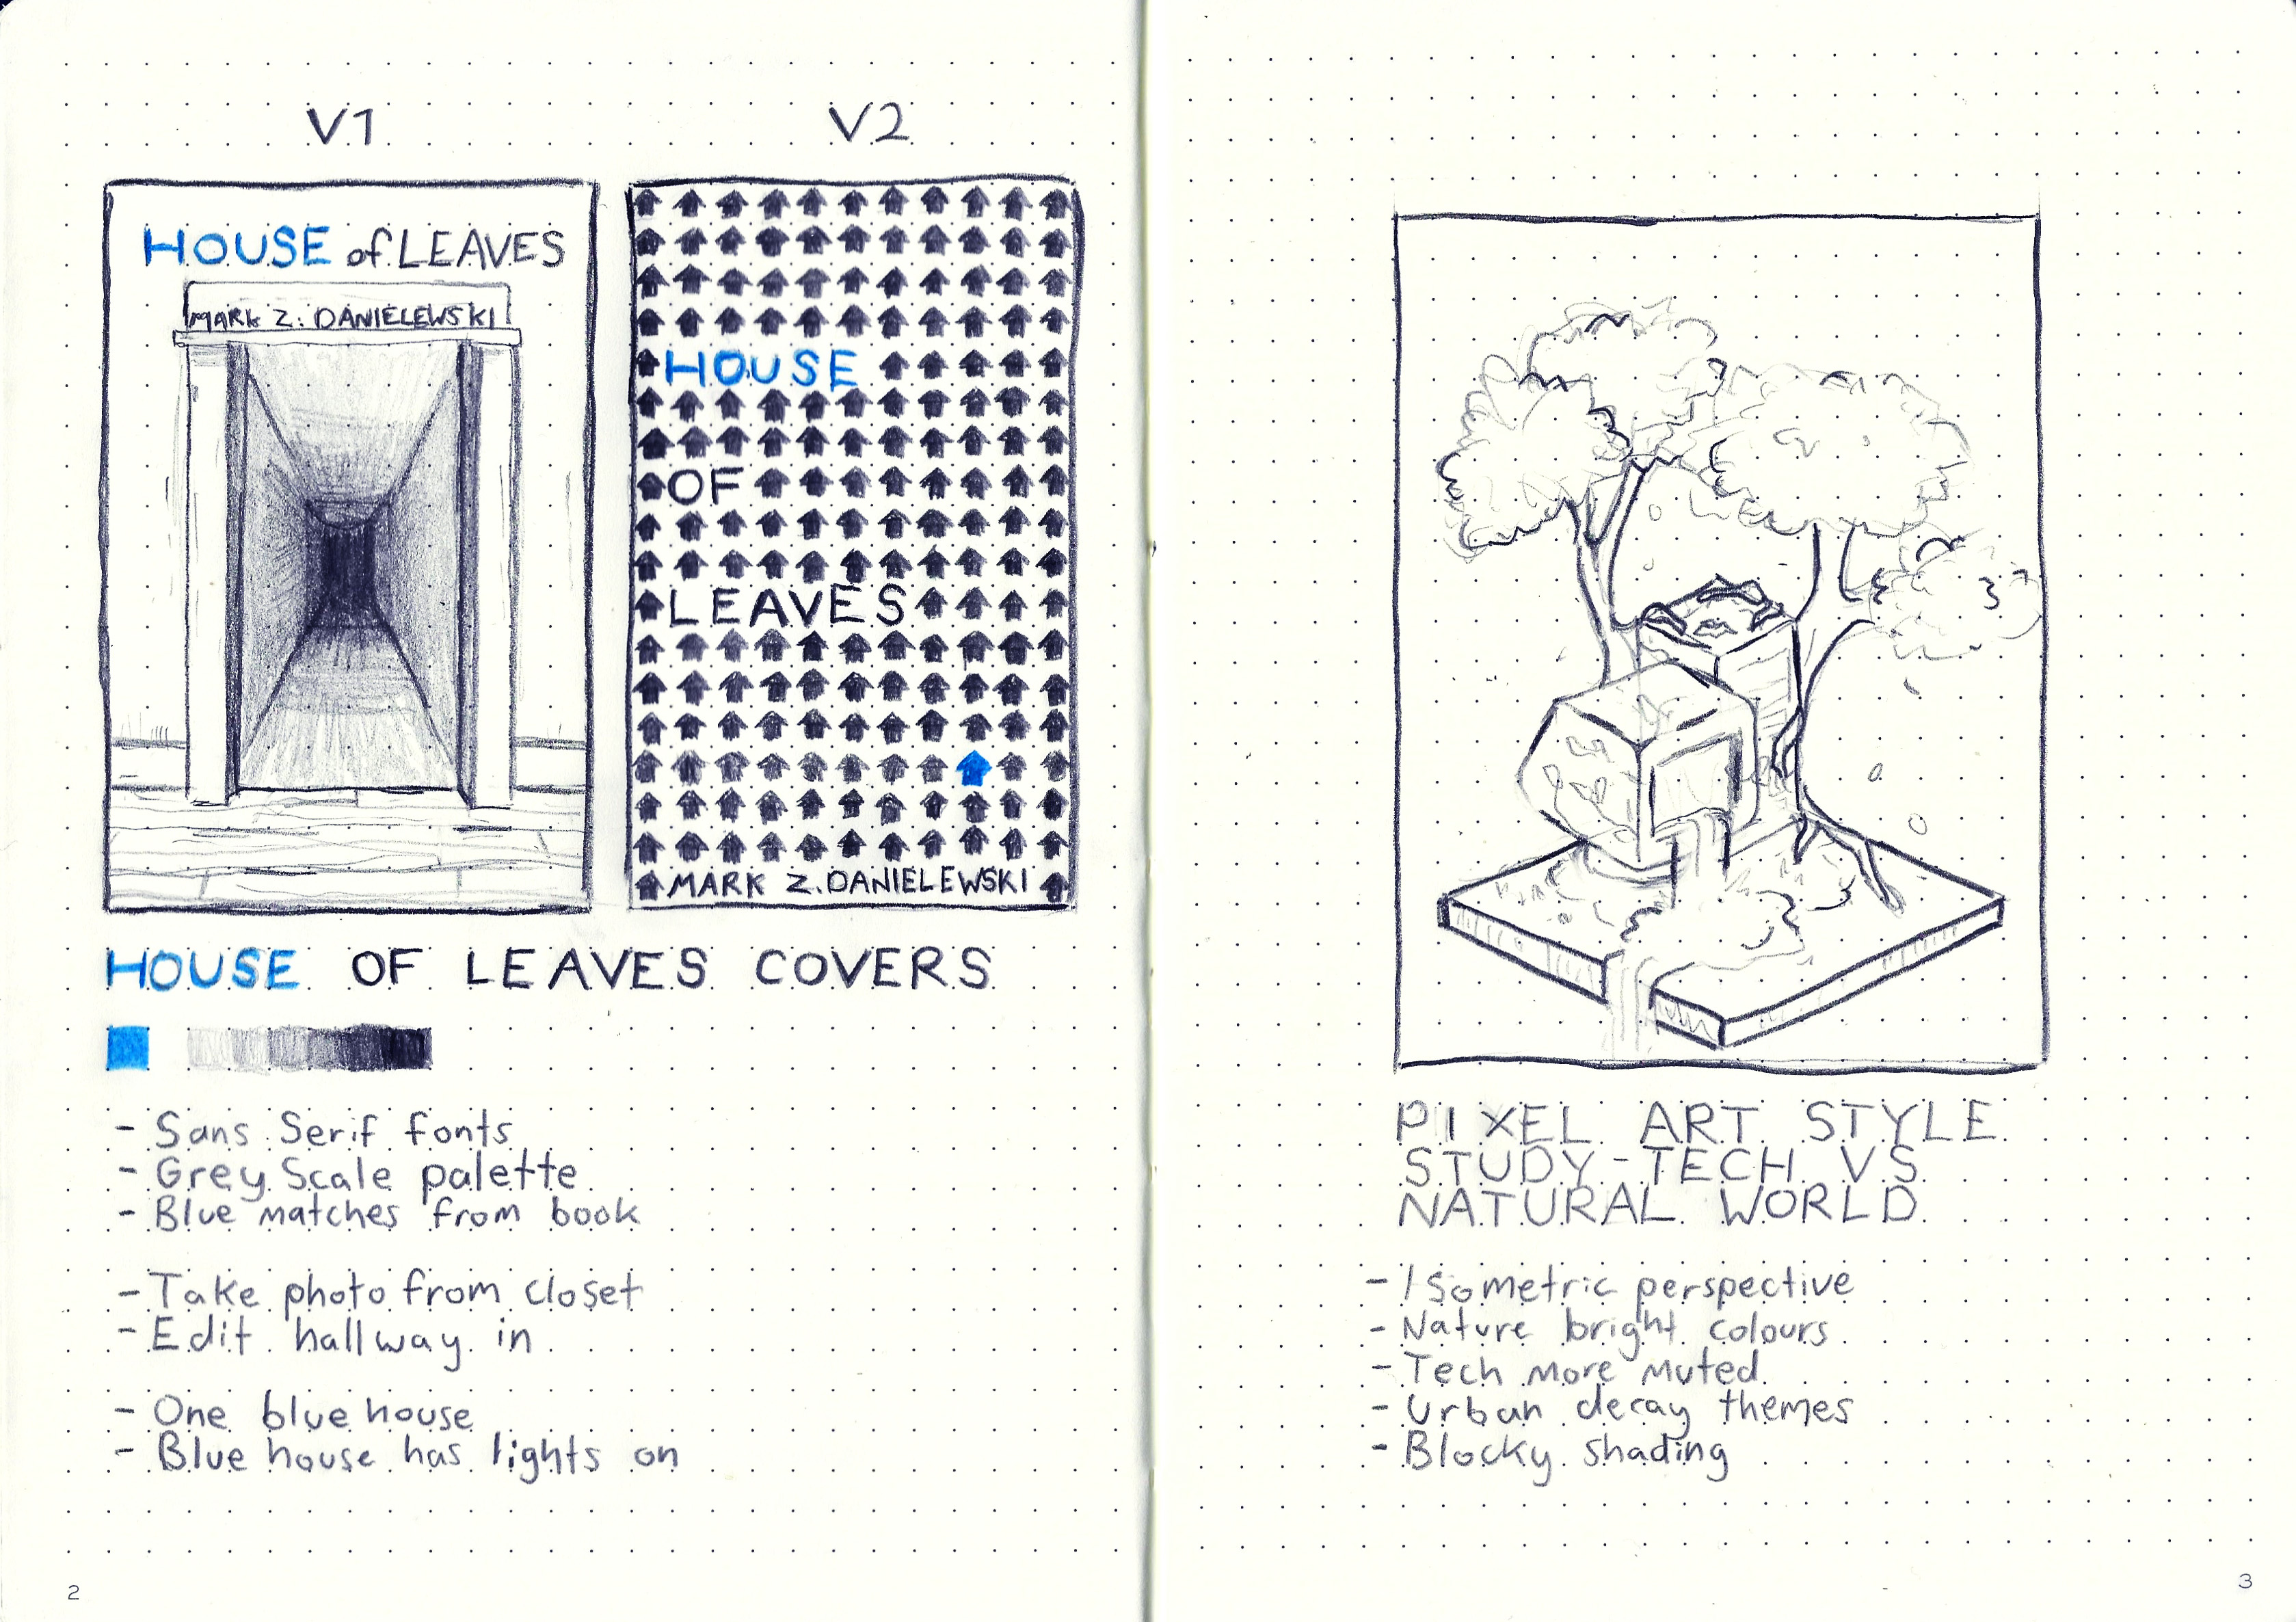 V1
HOUSE of LEAVES
MARK Z. DANIELEWSKI
V2
HOUSE
OF
LEAVES
MARK Z. DANIELEWSKI
HOUSE OF LEAVES COVERS
- Sans Serif fonts
- Grey Scale palette
- Blue matches from book
- Take photo from closet
- Edit hallway in
- One blue house
- Blue house has lights on
2
PIXEL ART STYLE
STUDY - TECH VS
NATURAL WORLD
- Isometric perspective
- Nature bright colours
- Tech more muted
- Urban decay themes
- Blocky shading
3